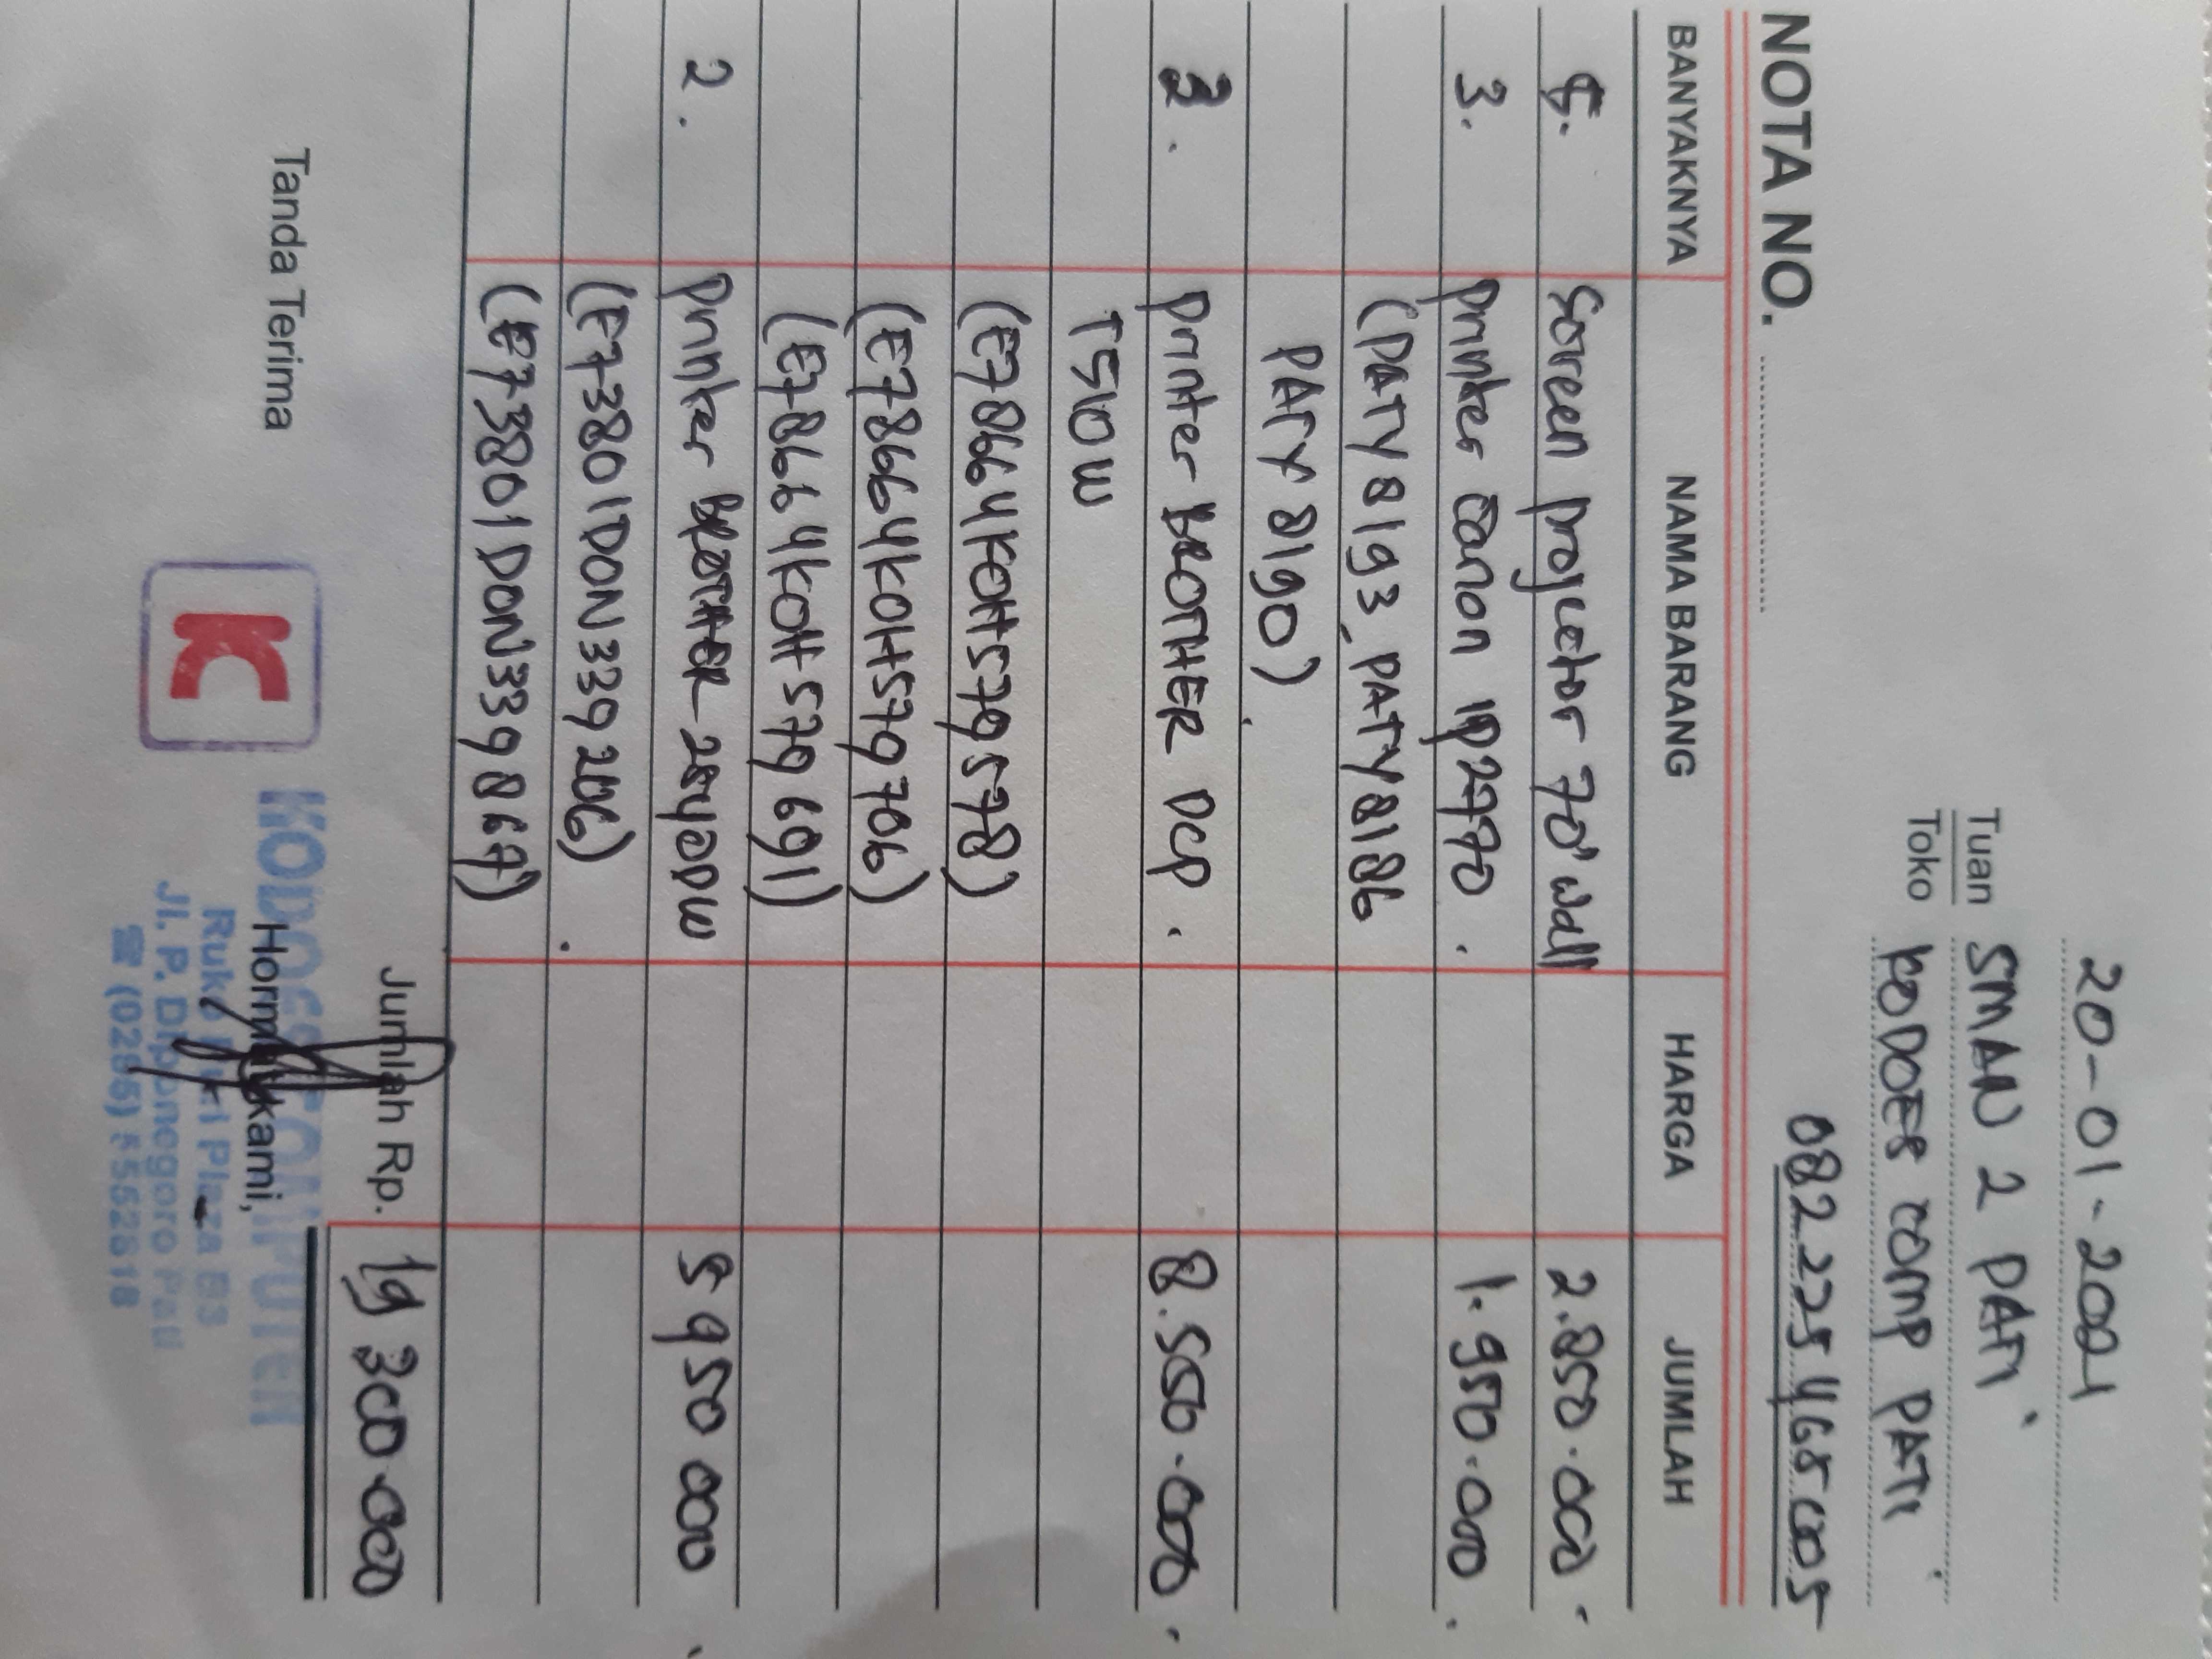 20-01-2021
Tuan SMAN 2 PATI
Toko KODOES COMP PATI
082225465005
NOTA NO.
BANYAKNYA NAMA BARANG HARGA JUMLAH
5. Screen projector 70" wall 2.850.000
3. printer canon ip2770. 1.950.000
(PATY 8193, PATY 8186
PATY 8190)
3. printer BROTHER DCP. 8.550.000
T510W
(E78664K0H579578)
(E78664K0H579706)
(E78664K0H579691)
2. Printer BROTHER 2540DW 5 950 000
(E73801D0N339206)
(E73801D0N339867)
Jumlah Rp. 19 300.000
Tanda Terima Hormat kami,
KODOES COMPUTER
Plaza B3
Jl. P. Diponegoro Pati